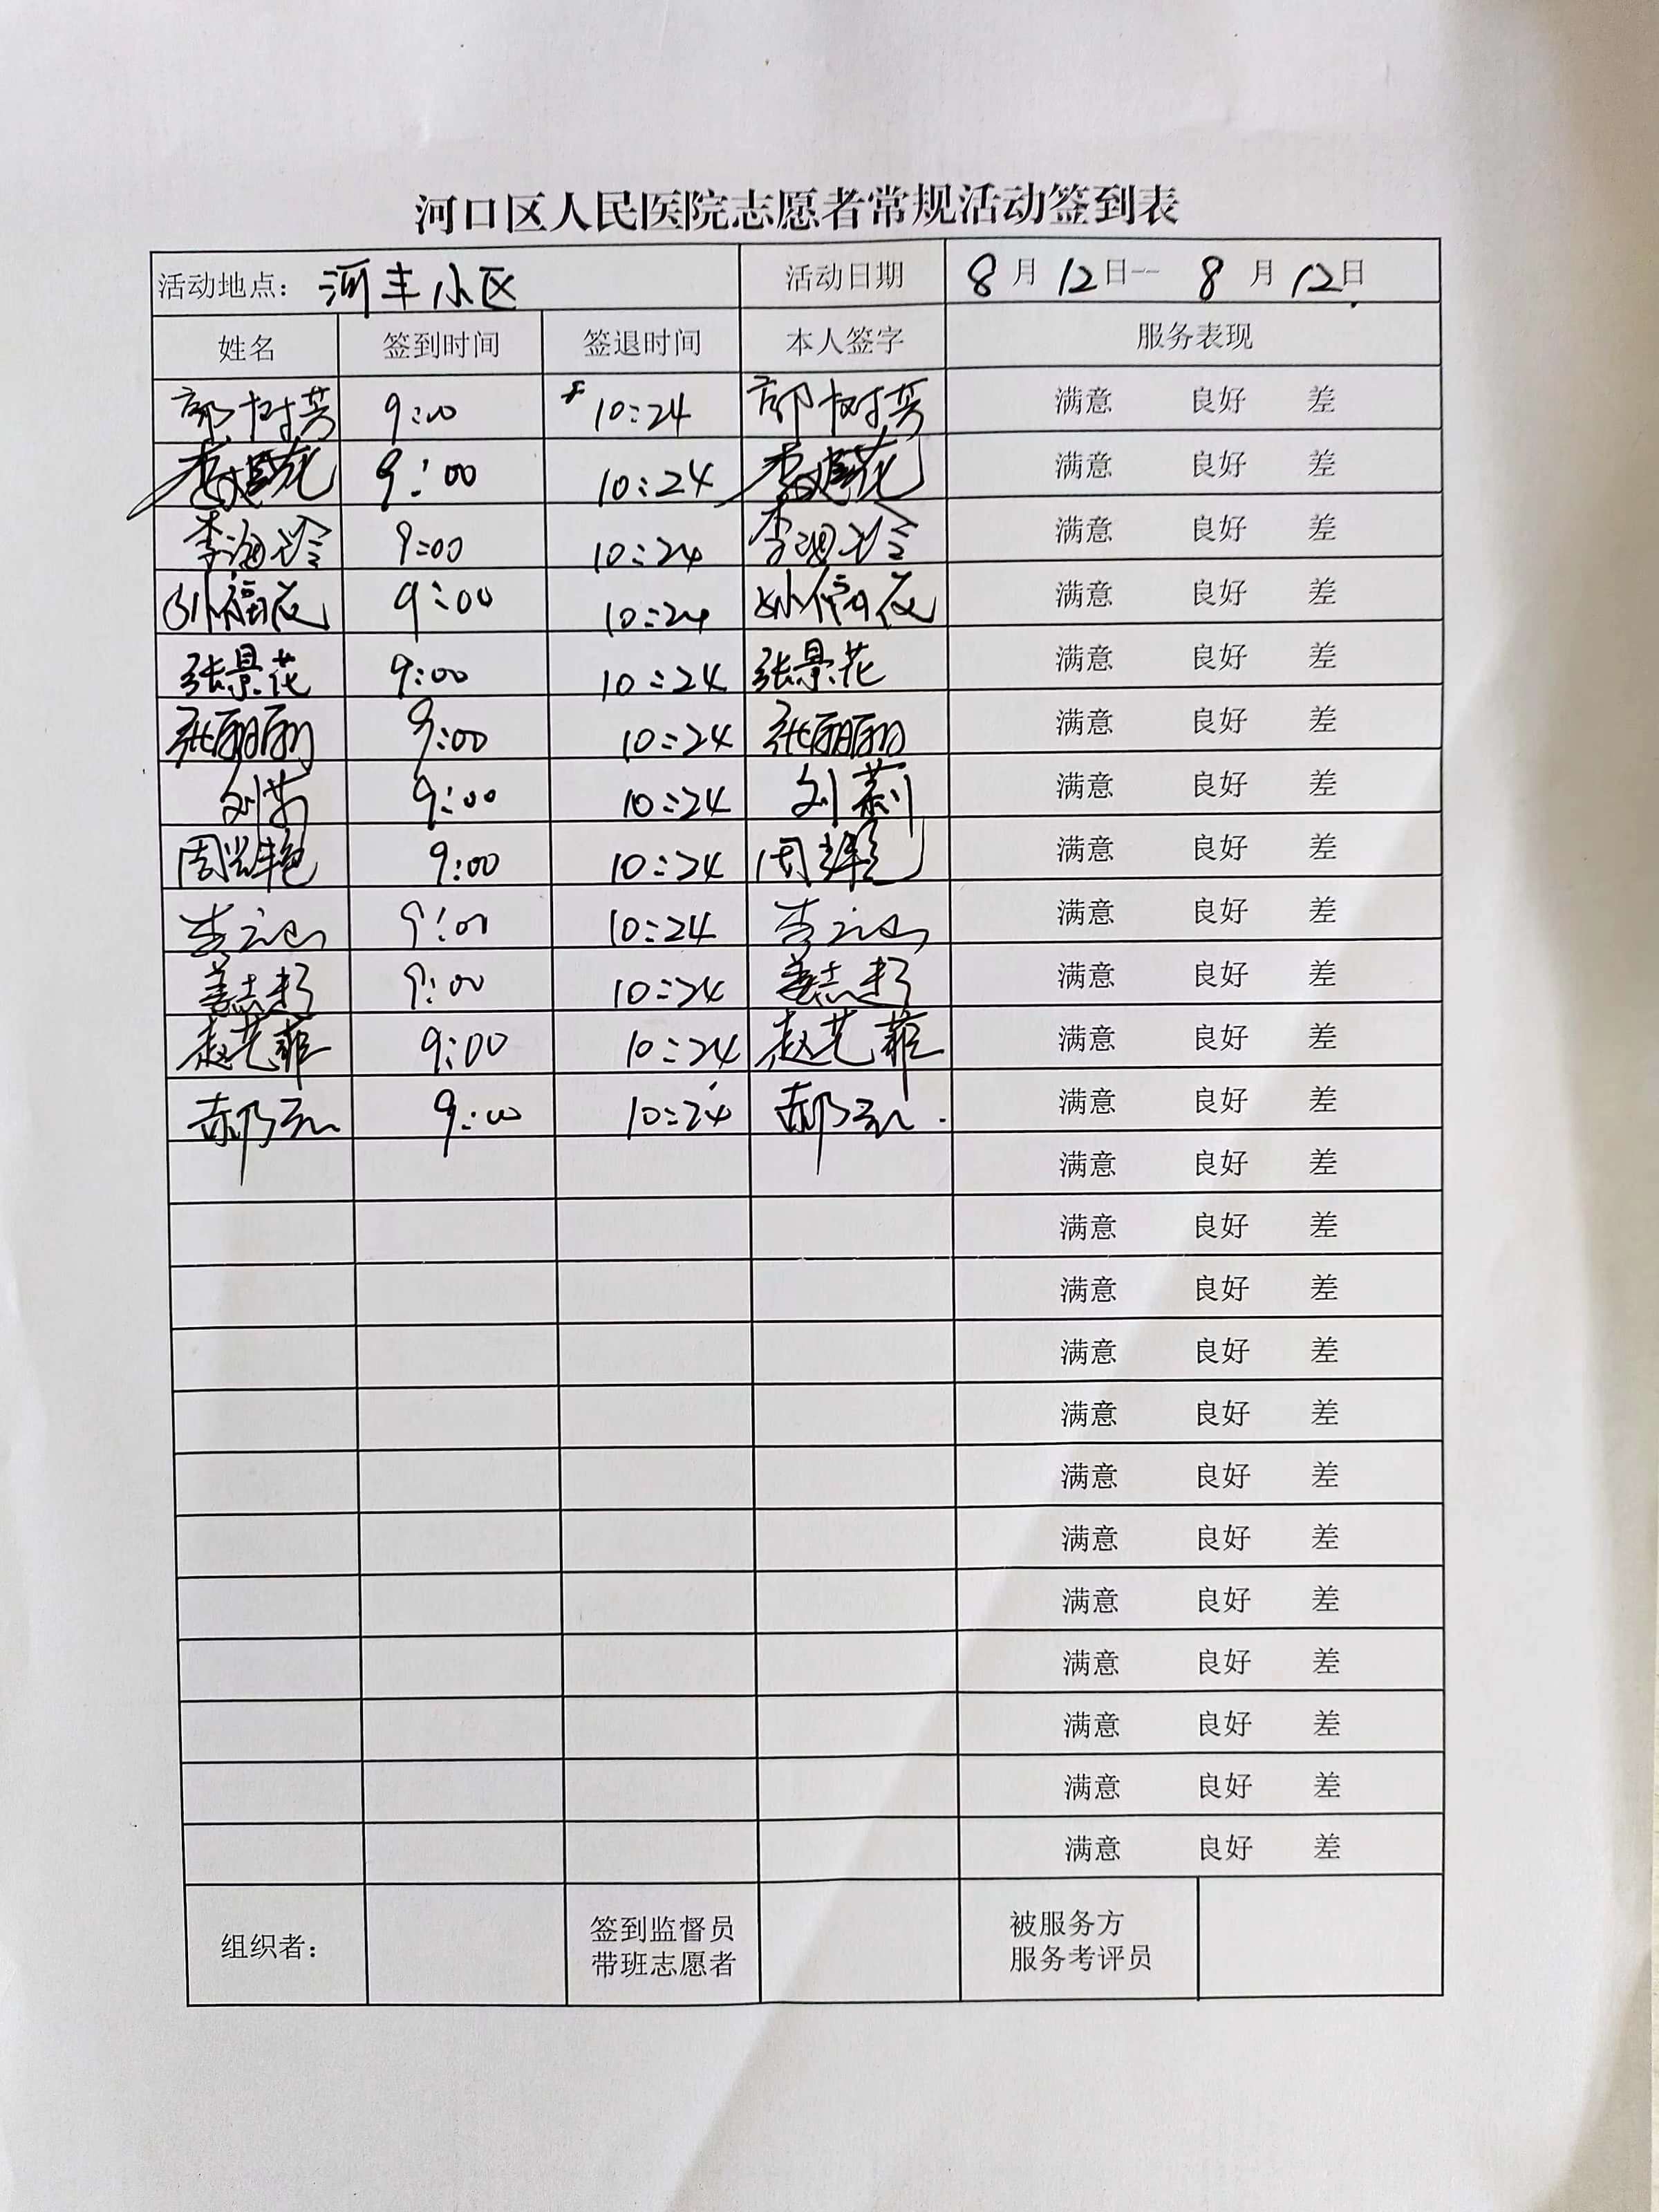 河口区人民医院志愿者常规活动签到表
活动地点: 河丰小区 活动日期 8月12日-- 8月12日
姓名 签到时间 签退时间 本人签字 服务表现
郭树芳 9:00 10:24 郭树芳 满意 良好 差
李建花 9:00 10:24 李建花 满意 良好 差
李海玲 9:00 10:24 李海玲 满意 良好 差
孙福花 9:00 10:24 孙福花 满意 良好 差
张景花 9:00 10:24 张景花 满意 良好 差
张丽丽 9:00 10:24 张丽丽 满意 良好 差
刘莉 9:00 10:24 刘莉 满意 良好 差
周光艳 9:00 10:24 周光艳 满意 良好 差
李 9:00 10:24 李 满意 良好 差
姜志 9:00 10:24 姜志 满意 良好 差
赵艺菲 9:00 10:24 赵艺菲 满意 良好 差
郝 9:00 10:24 郝 满意 良好 差
满意 良好 差
满意 良好 差
满意 良好 差
满意 良好 差
满意 良好 差
满意 良好 差
满意 良好 差
满意 良好 差
满意 良好 差
满意 良好 差
满意 良好 差
满意 良好 差
组织者: 签到监督员 被服务方
带班志愿者 服务考评员